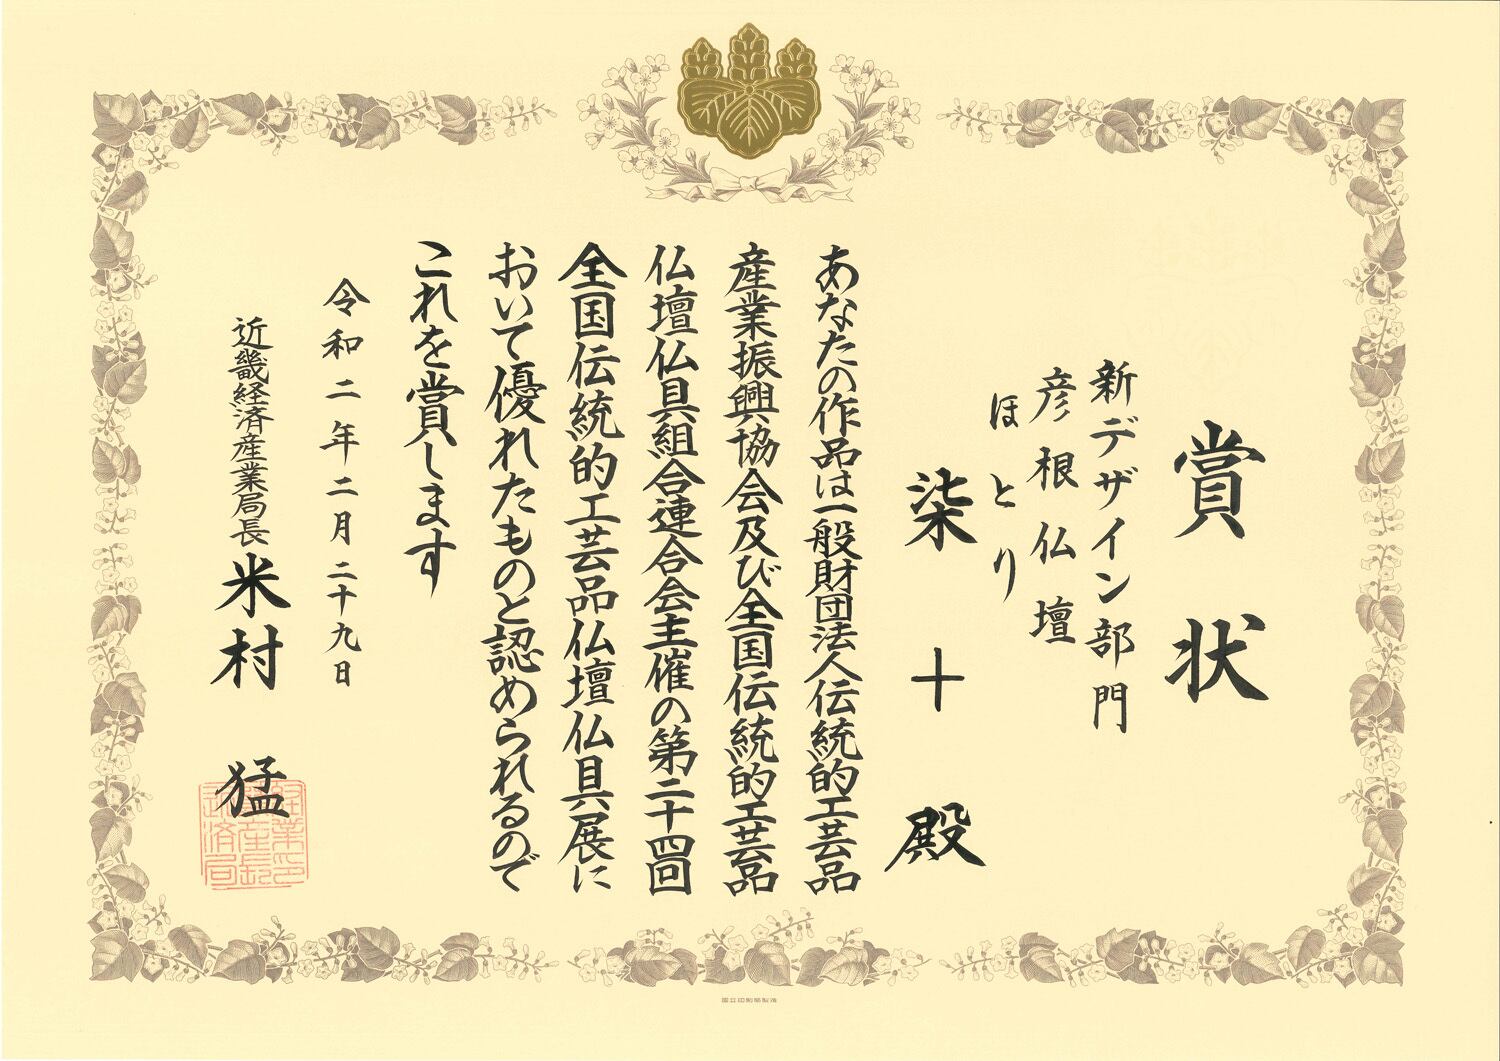 賞状
新デザイン部門
彦根仏壇
ほとり
柒十殿
あなたの作品は一般財団法人伝統的工芸品
産業振興協会及び全国伝統的工芸品
仏壇仏具組合連合会主催の第二十四回
全国伝統的工芸品仏壇仏具展に
おいて優れたものと認められるので
これを賞します
令和二年二月二十九日
近畿経済産業局長 米村 猛
国立印刷局製造